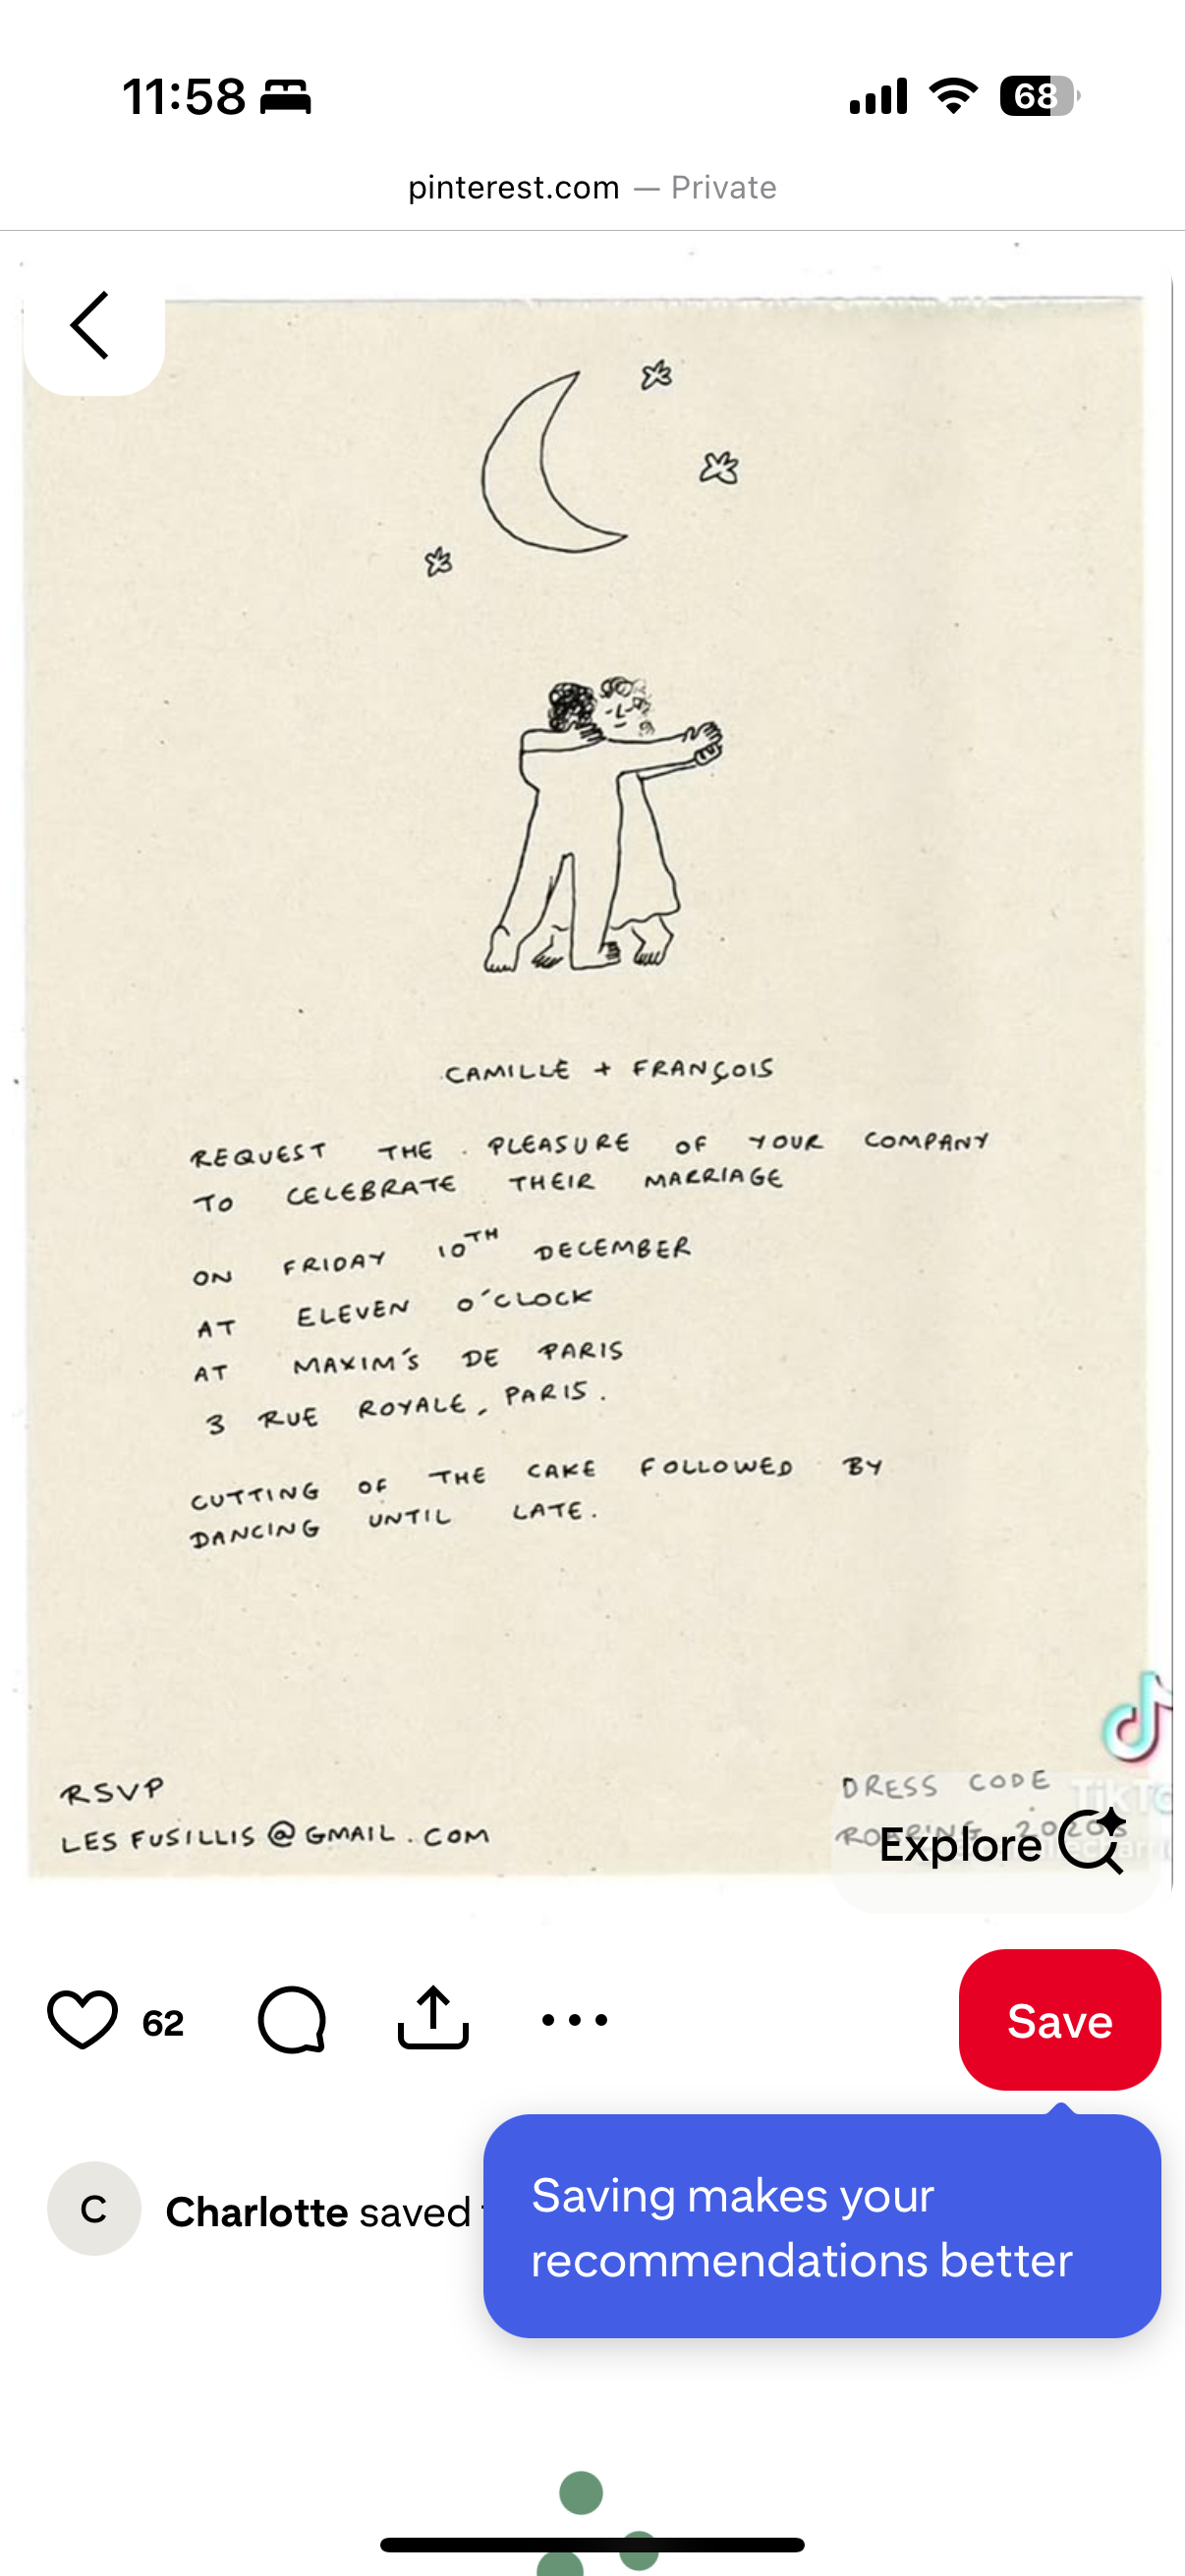 11:58
68
pinterest.com — Private
CAMILLE + FRANÇOIS
REQUEST THE PLEASURE OF YOUR COMPANY
TO CELEBRATE THEIR MARRIAGE
ON FRIDAY 10TH DECEMBER
AT ELEVEN O'CLOCK
AT MAXIM'S DE PARIS
3 RUE ROYALE, PARIS.
CUTTING OF THE CAKE FOLLOWED BY
DANCING UNTIL LATE.
RSVP
LES FUSILLIS @ GMAIL . COM
DRESS CODE
ROARING 2020s
TikTo
Explore
62
Save
C
Charlotte saved
Saving makes your
recommendations better